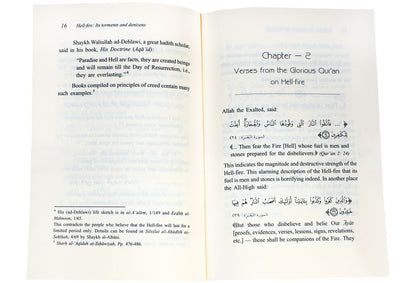 16    Hell-fire: Its torments and denizens
Shaykh Waliullah ad-Dehlawi, a great hadith scholar,
said in his book, His Doctrine (Aqā'id):
"Paradise and Hell are facts, they are created beings
and will remain till the Day of Resurrection, i.e.,
they are everlasting."⁸
Books compiled on principles of creed contain many
such examples.⁹
Mahmoon, 1/85.
This contradicts the people who believe that the Hell-fire will last for a
limited period only. Details can be found in Silsilat al-Ahādith as-
Sahihah, 4/69 by Shaykh al-Albāni.
Pp. 476-486.
Chapter – 2
Verses from the Glorious Qur'an
on Hell-fire
Allah the Exalted, said:
... فَاتَّقُوا النَّارَ الَّتِي وَقُودُهَا النَّاسُ وَالْحِجَارَةُ أُعِدَّتْ
لِلْكَافِرِينَ
... Then fear the Fire [Hell] whose fuel is men and
stones prepared for the disbelievers. (Qur'an 2: 24)
This indicates the magnitude and destructive strength of the
Hell-fire. This alarming description of the Hell-fire that its
fuel is men and stones is horrifying indeed. In another place
the All-High said:
وَالَّذِينَ كَفَرُوا وَكَذَّبُوا بِآيَاتِنَا أُولَٰئِكَ أَصْحَابُ النَّارِ هُمْ فِيهَا
خَالِدُونَ
But those who disbelieve and belie Our Āyāt
[proofs, evidences, verses, lessons, signs, revelations,
etc.] — those shall be companions of the Fire. They